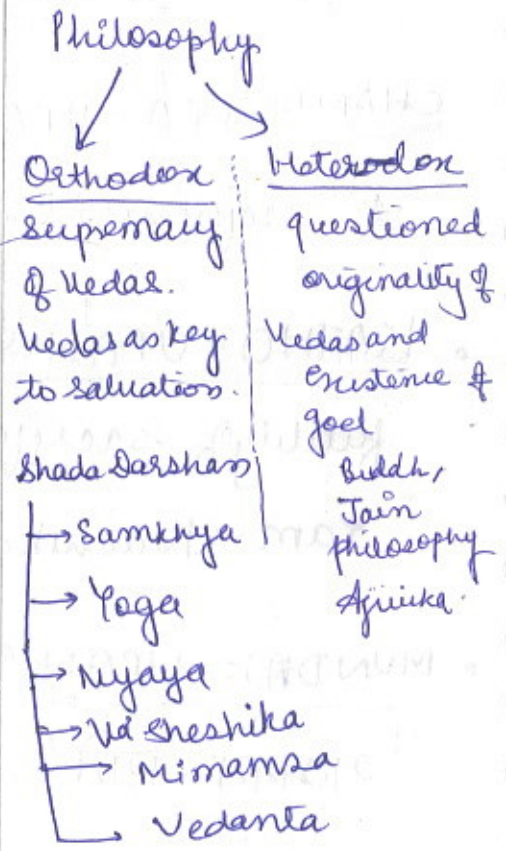 Philosophy
Orthodox
supremacy
of Vedas.
Vedas as key
to salvation.
Shada Darshan
Samkhya
Yoga
Nyaya
Vaisheshika
Mimamsa
Vedanta
Heterodox
questioned
originality of
Vedas and
Existence of
god
Buddh,
Jain
philosophy
Ajivika.